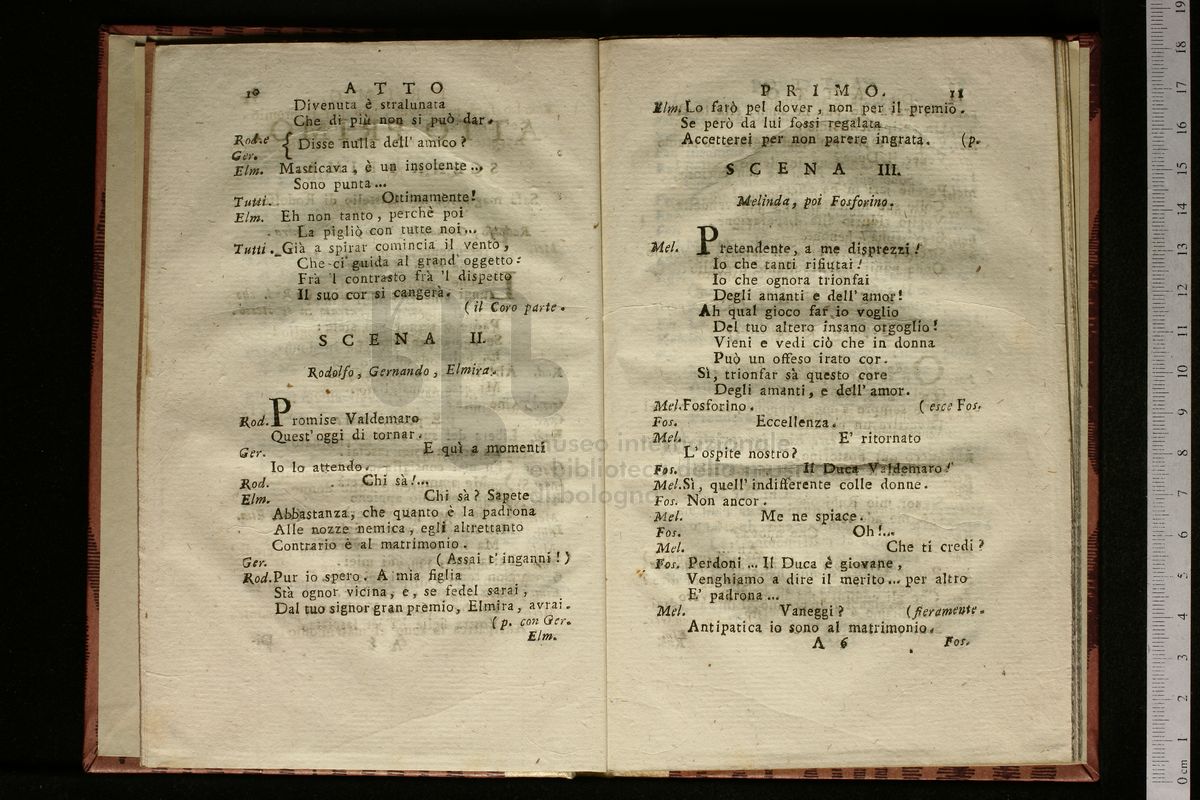 10 ATTO
Divenuta è stralunata
Che di più non si può dar.
Rod. e
Ger. { Disse nulla dell' amico?
Elm. Masticava, è un insolente...
Sono punta...
Tutti. Ottimamente!
Elm. Eh non tanto, perchè poi
La pigliò con tutte noi...
Tutti. Già a spirar comincia il vento,
Che ci guida al grand' oggetto:
Frà 'l contrasto frà 'l dispetto
Il suo cor si cangerà.
(il Coro parte.
SCENA II.
Rodolfo, Gernando, Elmira.
Rod. Promise Valdemaro
Quest' oggi di tornar.
Ger. E quì a momenti
Io lo attendo.
Rod. Chi sà!...
Elm. Chi sà? Sapete
Abbastanza, che quanto è la padrona
Alle nozze nemica, egli altrettanto
Contrario è al matrimonio.
Ger. (Assai t' inganni!)
Rod. Pur io spero. A mia figlia
Stà ognor vicina, e, se fedel sarai,
Dal tuo signor gran premio, Elmira, avrai.
(p. con Ger.
Elm.
PRIMO. 11
Elm. Lo farò pel dover, non per il premio.
Se però da lui fossi regalata
Accetterei per non parere ingrata. (p.
SCENA III.
Melinda, poi Fosforino.
Mel. Pretendente, a me disprezzi!
Io che tanti rifiutai!
Io che ognora trionfai
Degli amanti e dell' amor!
Ah qual gioco far io voglio
Del tuo altero insano orgoglio!
Vieni e vedi ciò che in donna
Può un offeso irato cor.
Sì, trionfar sà questo core
Degli amanti, e dell' amor.
Mel. Fosforino. (esce Fos.
Fos. Eccellenza.
Mel. E' ritornato
L' ospite nostro?
Fos. Il Duca Valdemaro!
Mel. Sì, quell' indifferente colle donne.
Fos. Non ancor.
Mel. Me ne spiace.
Fos. Oh!...
Mel. Che ti credi?
Fos. Perdoni... Il Duca è giovane,
Venghiamo a dire il merito... per altro
E' padrona...
Mel. Vaneggi? (fieramente.
Antipatica io sono al matrimonio.
A 6 Fos.
museo internazionale
e biblioteca della
di bologna
0 cm 1 2 3 4 5 6 7 8 9 10 11 12 13 14 15 16 17 18 19